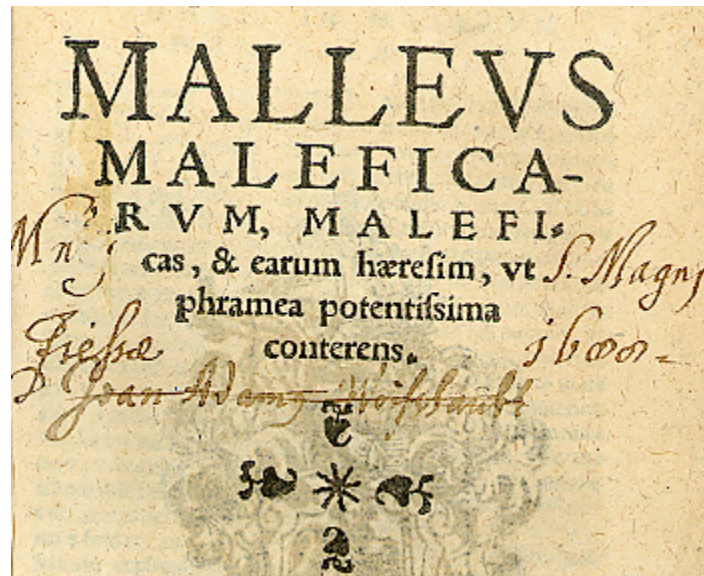 MALLEVS
MALEFICA-
RVM, MALEFI-
cas, & earum hæresim, vt
phramea potentissima
conterens.
Mn
S. Magnj
Joan Adamg